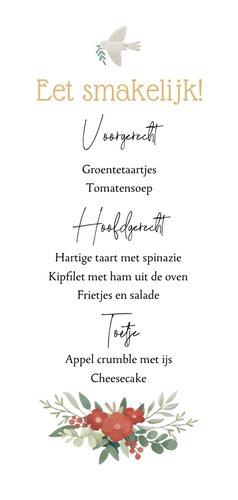 Eet smakelijk!
Voorgerecht
Groentetaartjes
Tomatensoep
Hoofdgerecht
Hartige taart met spinazie
Kipfilet met ham uit de oven
Frietjes en salade
Toetje
Appel crumble met ijs
Cheesecake